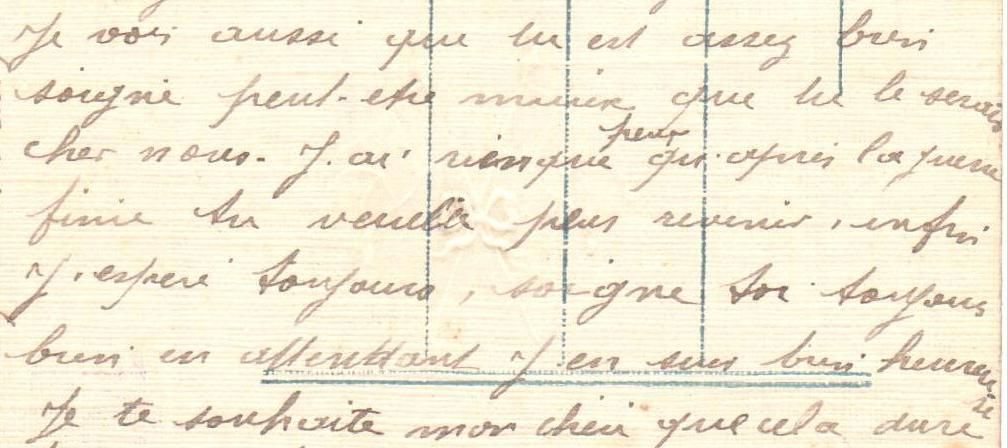 Je vois aussi que tu est assez bien
soigné peut-etre mieux que tu le serais
cher nous. J. ai rien que peur qu. apres la guerre
finie tu veuille plus revenir, enfin
J. espere toujours, soigne toi toujours
bien en attendant J en suis bien heureuse
Je te souhaite mon cheri que cela dure